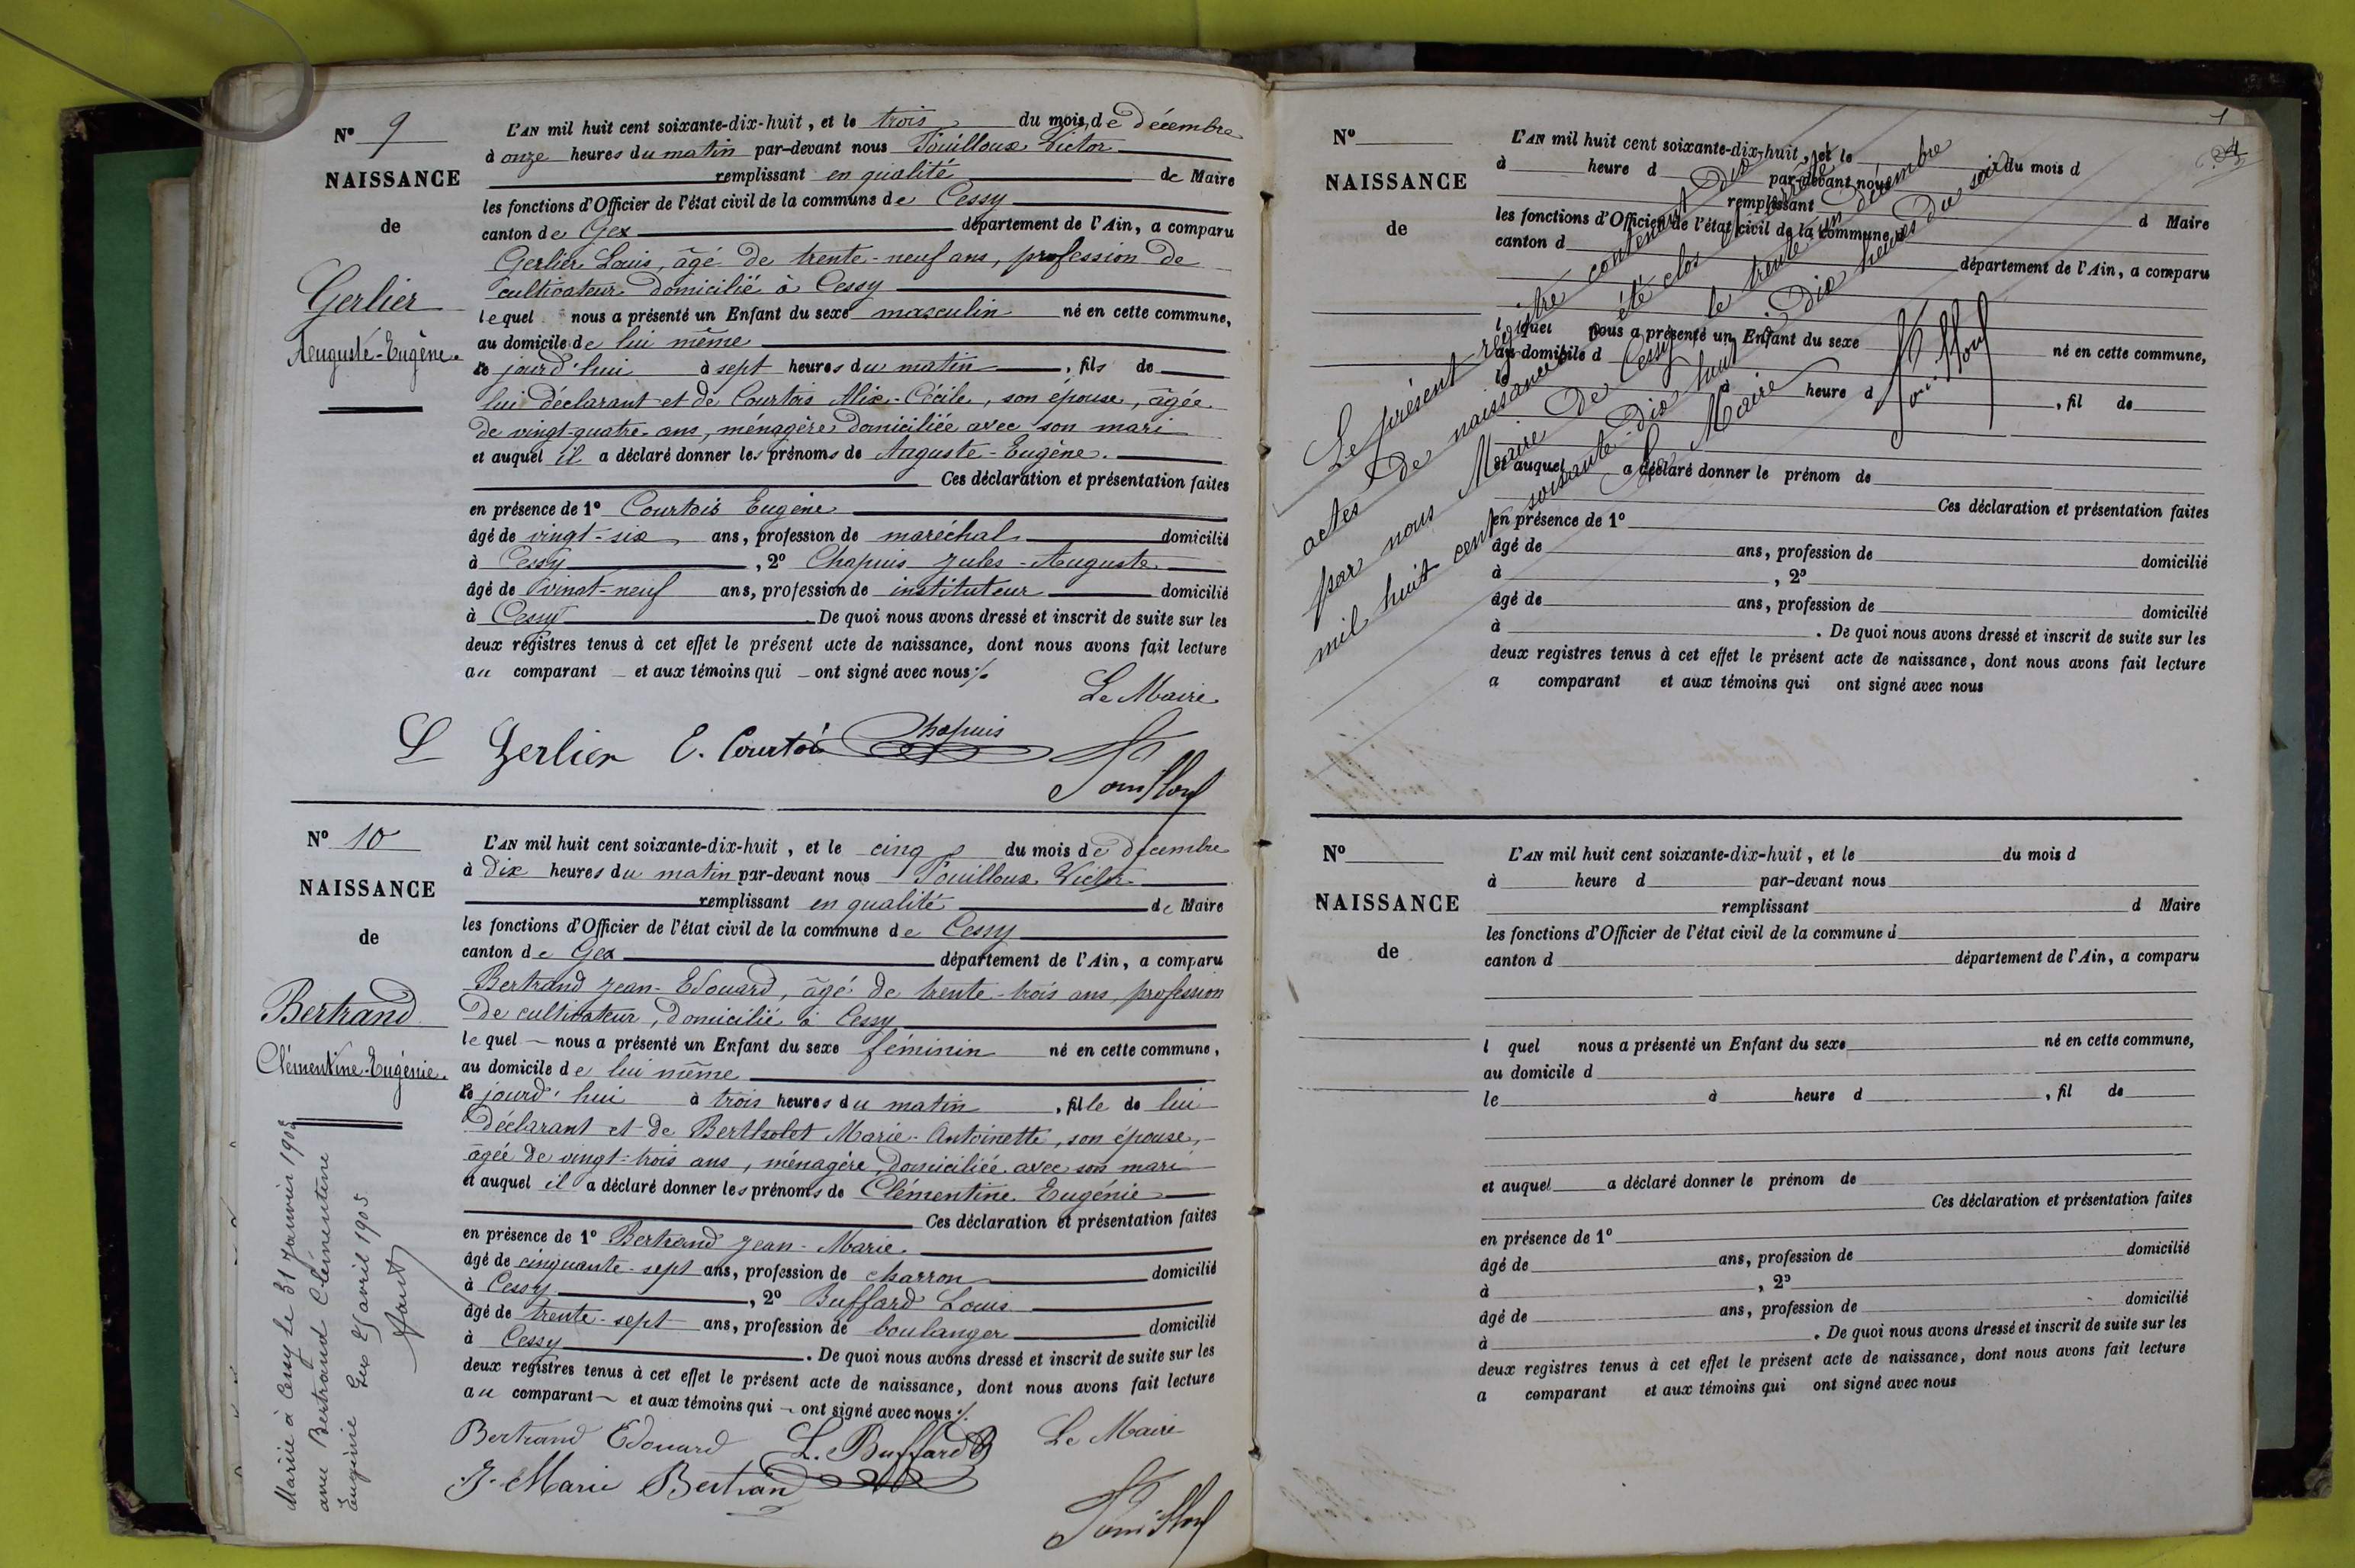 N° 9
NAISSANCE
de
Gerlier
Auguste-Eugène.
L'AN mil huit cent soixante-dix-huit, et le trois du mois de décembre
à onze heures du matin par-devant nous Pouilloux Victor
remplissant en qualité de Maire
les fonctions d'Officier de l'état civil de la commune de Cessy
canton de Gex département de l'Ain, a comparu
Gerlier Louis, âgé de trente-neuf ans, profession de
cultivateur domicilié à Cessy
lequel nous a présenté un Enfant du sexe masculin né en cette commune,
au domicile de lui même
le jourd'hui à sept heures du matin, fils de
lui déclarant et de Courtois Alix-Cécile, son épouse, âgée
de vingt-quatre ans, ménagère domiciliée avec son mari
et auquel il a déclaré donner les prénoms de Auguste-Eugène.
Ces déclaration et présentation faites
en présence de 1° Courtois Eugène
âgé de vingt-six ans, profession de maréchal domicilié
à Cessy, 2° Chapuis Jules-Auguste
âgé de vingt-neuf ans, profession de instituteur domicilié
à Cessy. De quoi nous avons dressé et inscrit de suite sur les
deux registres tenus à cet effet le présent acte de naissance, dont nous avons fait lecture
au comparant et aux témoins qui ont signé avec nous ./.
Le Maire
L Gerlier E. Courtois Chapuis
Pouilloux
N° 10
NAISSANCE
de
Bertrand
Clémentine-Eugénie.
L'AN mil huit cent soixante-dix-huit, et le cinq du mois de décembre
à dix heures du matin par-devant nous Pouilloux Victor
remplissant en qualité de Maire
les fonctions d'Officier de l'état civil de la commune de Cessy
canton de Gex département de l'Ain, a comparu
Bertrand Jean-Edouard, âgé de trente-trois ans, profession
de cultivateur, domicilié à Cessy
lequel nous a présenté un Enfant du sexe féminin né en cette commune,
au domicile de lui même
le jourd'hui à trois heures du matin, fille de lui
déclarant et de Berthelet Marie-Antoinette, son épouse,
âgée de vingt-trois ans, ménagère, domiciliée avec son mari
et auquel il a déclaré donner les prénoms de Clémentine Eugénie
Ces déclaration et présentation faites
en présence de 1° Bertrand Jean-Marie
âgé de cinquante-sept ans, profession de charron domicilié
à Cessy, 2° Buffard Louis
âgé de trente-sept ans, profession de boulanger domicilié
à Cessy. De quoi nous avons dressé et inscrit de suite sur les
deux registres tenus à cet effet le présent acte de naissance, dont nous avons fait lecture
au comparant et aux témoins qui ont signé avec nous ./.
Bertrand Edouard L. Buffard Le Maire
J-Marie Bertrand
Pouilloux
Mariée à Cessy le 31 Janvier 1905
avec Bertrand Clémentine
Eugénie Gex avril 1905
N°
NAISSANCE
de
L'AN mil huit cent soixante-dix-huit, et le du mois d
à heure d par-devant nous
remplissant d Maire
les fonctions d'Officier de l'état civil de la commune d
canton d département de l'Ain, a comparu
l quel nous a présenté un Enfant du sexe né en cette commune,
au domicile d
le à heure d, fil de
et auquel a déclaré donner le prénom de
Ces déclaration et présentation faites
en présence de 1°
âgé de ans, profession de domicilié
à , 2°
âgé de ans, profession de domicilié
à . De quoi nous avons dressé et inscrit de suite sur les
deux registres tenus à cet effet le présent acte de naissance, dont nous avons fait lecture
a comparant et aux témoins qui ont signé avec nous
Le présent registre contenant dix
actes de naissances a été clos et arrêté
par nous Maire de Cessy le trente un décembre
mil huit cent soixante-dix huit à dix heures du soir
Le Maire
Pouilloux
N°
NAISSANCE
de
L'AN mil huit cent soixante-dix-huit, et le du mois d
à heure d par-devant nous
remplissant d Maire
les fonctions d'Officier de l'état civil de la commune d
canton d département de l'Ain, a comparu
l quel nous a présenté un Enfant du sexe né en cette commune,
au domicile d
le à heure d, fil de
et auquel a déclaré donner le prénom de
Ces déclaration et présentation faites
en présence de 1°
âgé de ans, profession de domicilié
à , 2°
âgé de ans, profession de domicilié
à . De quoi nous avons dressé et inscrit de suite sur les
deux registres tenus à cet effet le présent acte de naissance, dont nous avons fait lecture
a comparant et aux témoins qui ont signé avec nous